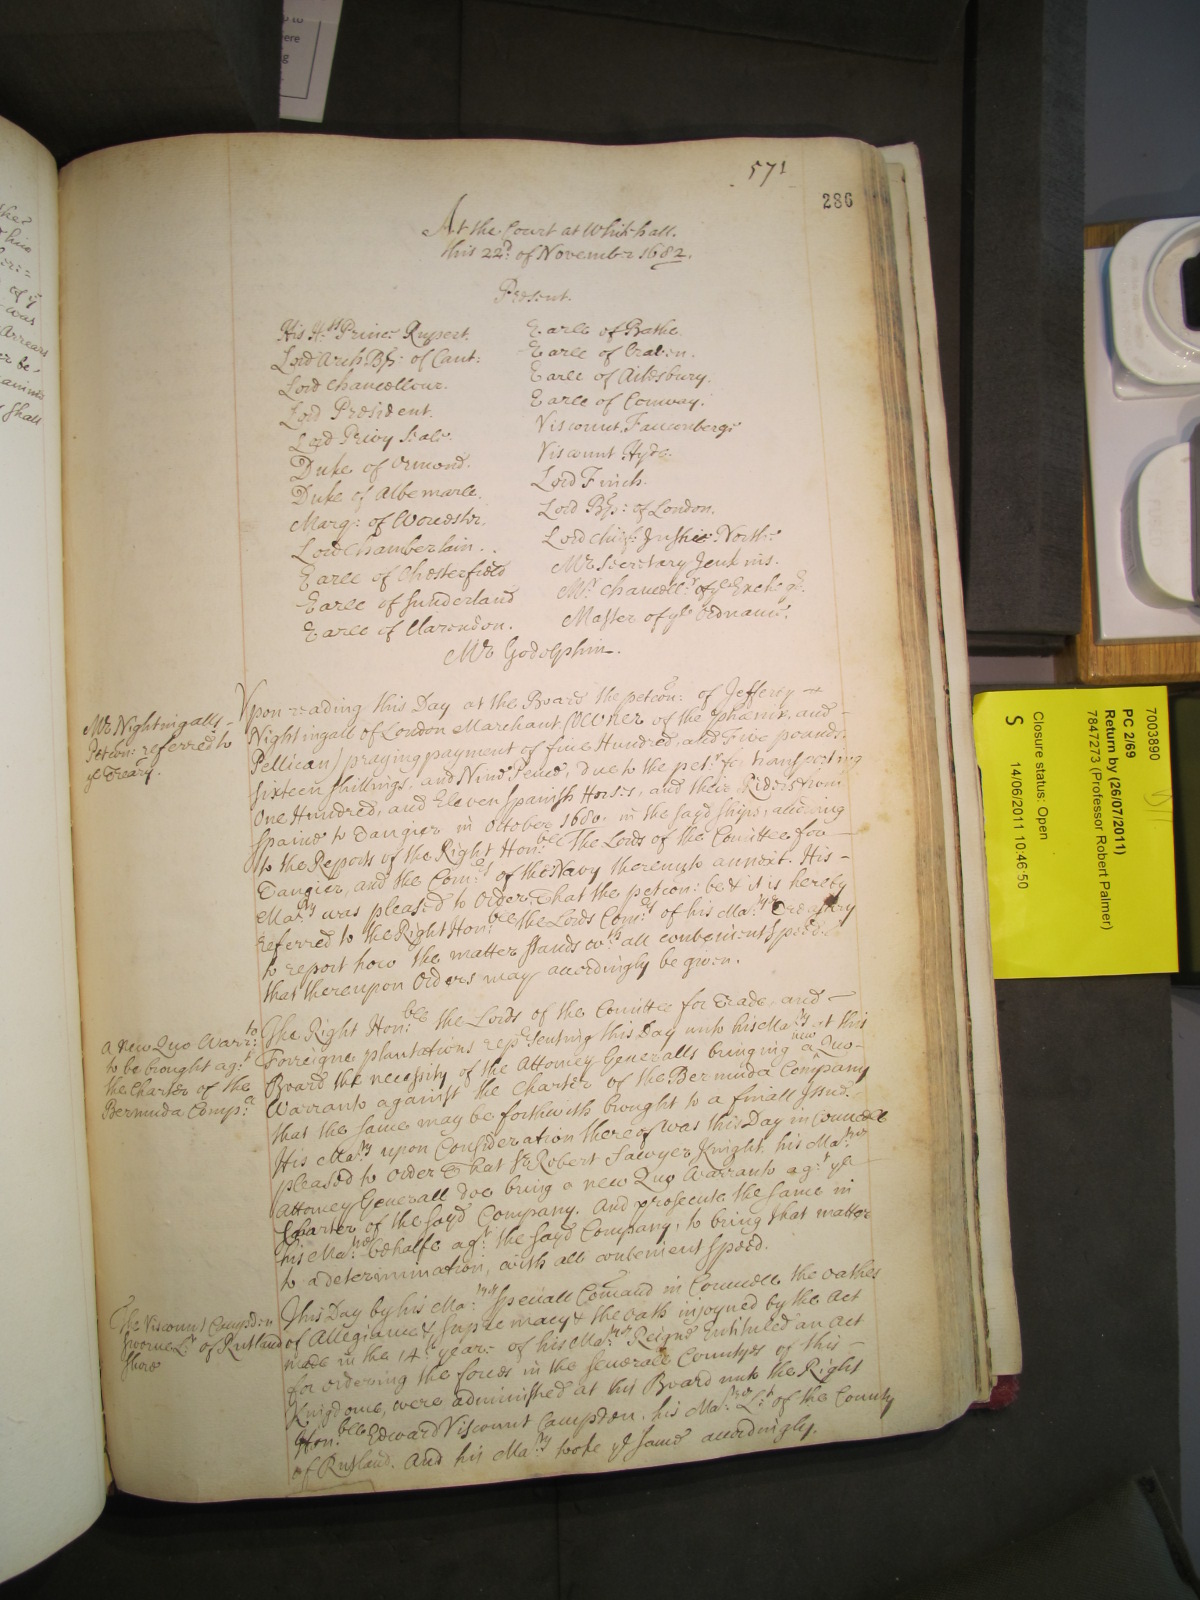 571
286
At the Court at Whitehall.
this 22d. of November 1682.
Present.
His Hss. Prince Rupert.
Lord Arch Bp: of Cant:
Lord Chancellour.
Lord President.
Lord Privy Seale.
Duke of Ormond.
Duke of Albemarle.
Marq: of Worcester.
Lord Chamberlain.
Earle of Chesterfield
Earle of Sunderland
Earle of Clarendon.
Earle of Bathe.
Earle of Craven.
Earle of Ailesbury.
Earle of Conway.
Viscount Fauconberge
Viscount Hyde.
Lord Finch.
Lord Bp: of London.
Lord chiefe Justice North.
Mr Secretary Jenkins.
Mr. Chancellr. of ye Excheqr.
Master of ye Ordnance.
Mr Godolphin.
Mr Nightingalls
Peticon: referred to
ye Treary.
Upon reading this Day at the Board the peticon: of Jeffery
Nightingall of London Marchant Owner of the Phoenix, and
Pellican, praying payment of five Hundred, and Five pounds,
Sixteen shillings, and Nine Pence, due to the petr. for transporting
One Hundred, and Eleven Spanish Horses, and their Riders from
Spaine to Tangier in October 1680. in the sayd ships,
to the Reports of the Right Honble. The Lords of the Comittee for
Tangier, and the Comrs. of the Navy thereunto annext. His
Maty. was pleased to Order, That the peticon: be & it is hereby
referred to the Right Honble. the Lords Comrs. of his Mats. Treasury
to report how the matter stands wth. all convenient speed.
that thereupon Orders may accordingly be given.
A new Quo Warrto:
to be brought agt.
the Charter of the
Bermuda Compa.
The Right Honble. the Lords of the Comittee for Trade, and
Forreigne plantations representing this Day unto his Maty. at this
Board the necessity of the Attorney Generalls bringing a new Quo
Warranto against the Charter of the Bermuda Company
that the same may be forthwith brought to a finall Issue.
His Maty. upon Consideration thereof was this Day in Councell
pleased to Order That Sr. Robert Sawyer Knight, his Mats.
Attorney Generall doe bring a new Quo Warranto agt. ye
Charter of the sayd Company. And prosecute the same in
his Mats. behalfe agt. the sayd Company, to bring that matter
to a determination, with all convenient speed.
The Viscount Campden
sworne Lt. of Rutland
shire
This Day by his Mats. speciall Comand in Councell the Oathes
of Allegiance & Supremacy & the Oath injoyned by the Act
made in the 14th. yeare of his Mats. Reigne Entituled an Act
for ordering the forces in the severall Countyes of this
Kingdome, were administred at this Board unto the Right
Honble. Edward Viscount Campden, his Mats. Lt. of the County
of Rutland. And his Maty. tooke ye same accordingly.
7003890
PC 2/69
Return by (26/07/2011)
7847273 (Professor Robert Palmer)
Closure status: Open
S 14/06/2011 10:46:50